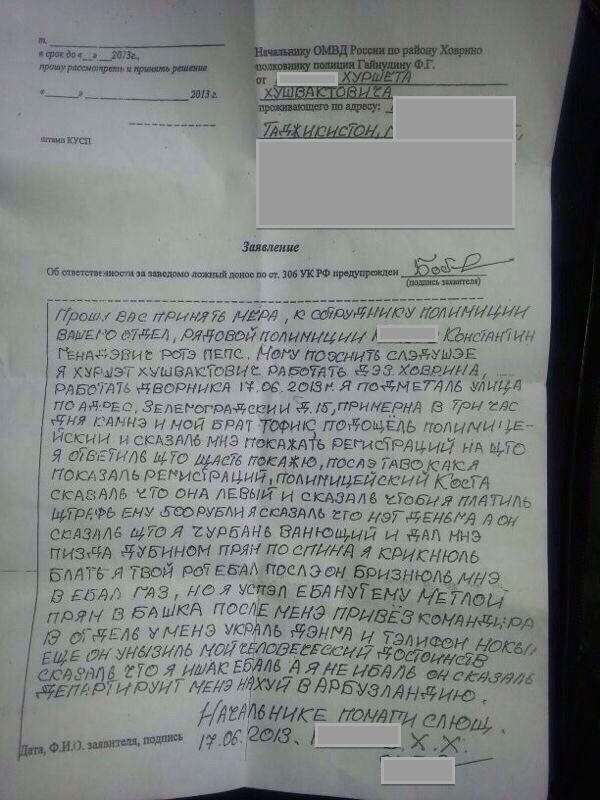 т.
в срок до «__» ___ 2013г.,
прошу рассмотреть и принять решение
«______» ____________________ 2013 г.
штамп КУСП
Начальнику ОМВД России по району Ховрино
полковнику полиции Гайнулину Ф.Г.
от ХУРШЕТА
ХУШВАКТОВИЧА
проживающего по адресу:
ТАДЖИКИСТОН,
Заявление
Об ответственности за заведомо ложный донос по ст. 306 УК РФ предупрежден
(подпись заявителя)
ПРОШУ ВАС ПРИНЯТЬ МЕРА, К СОТРУДНИКУ ПОЛИМИЦИИ
ВАШЕГО ОТДЕЛ, РЯДОВОЙ ПОЛИМИЦИИ КОНСТАНТИН
ГЕНАДЭВИЧ РОТЭ ПЕПС. МОМУ ПОЭСНИТЬ СЛЭДУШЭЕ
Я ХУРШЭТ ХУШВАКТОВИЧ РАБОТАТЬ ДЭЗ ХОВРИНА,
РАБОТАТЬ ДВОРНИКА 17.06.2013м. Я ПОДМЕТАЛЬ УЛИЦА
ПО АДРЕС, ЗЕЛЕМОГРАДСКИИ Д.15, ПРИМЕРНА В ТРИ ЧАС
ДНЯ КАМНЭ И МОЙ БРАТ ТОФИК ПОДОЩЁЛЬ ПОЛИМИЦЕ-
ЙСКИИ И СКАЗАЛЬ МНЭ ПОКАЖАТЬ РЕГИСТРАЦИЙ НА ЩТО
Я ОТВЕТИЛЬ ЩТО ЩАСТЬ ПОКАЖЮ, ПОСЛЭ ТАВО КАК Я
ПОКАЗАЛЬ РЕМИСТРАЦИЙ, ПОЛИМИЦЕЙСКИЙ КОСТА
СКАЗАЛЬ ЧТО ОНА ЛЕВЫЙ И СКАЗАЛЬ ЧТОБИ Я ПЛАТИЛЬ
ЩТРАФЬ ЕМУ 500 РУБЛИ Я СКАЗАЛЬ ЧТО НЭТ ДЕНЬМА А ОН
СКАЗАЛЬ ЩТО Я ЧУРБАНЬ ВАНЮЩИЙ И ДАЛ МНЭ
ПИЗДА ДУБИНОМ ПРЯМ ПО СПИНА Я КРИКНЮЛЬ
БЛАТЬ Я ТВОЙ РОТ ЕБАЛ ПОСЛЭ ОН БРИЗНЮЛЬ МНЭ
В ЕБАЛ ГАЗ, НО Я УСПЭЛ ЕБАНУТ ЕМУ МЕТЛОЙ
ПРЯМ В БАШКА ПОСЛЕ МЕНЭ ПРИВЁЗ КОМАНДИРА
В ОТДЕЛЬ У МЕНЭ УКРАЛЬ ДЭНМА И ТЭЛИФОН НОКЫ
ЕЩЕ ОН УНЫЗИЛЬ МОЙ ЧЕЛОВЕЧЕСКИЙ ДОСТОИНСТВ
СКАЗАЛЬ ЧТО Я ИШАК ЕБАЛЬ А Я НЕ ИБАЛЬ ОН СКАЗАЛЬ
ДЕПАРТИРУИТ МЕНЭ НАХУЙ В АРБУЗЛАНДИЮ.
НАЧАЛЬНИКЕ ПОМАГИ СЛЮЩ.
Дата, Ф.И.О. заявителя, подпись
17.06.2013. Х.Х.